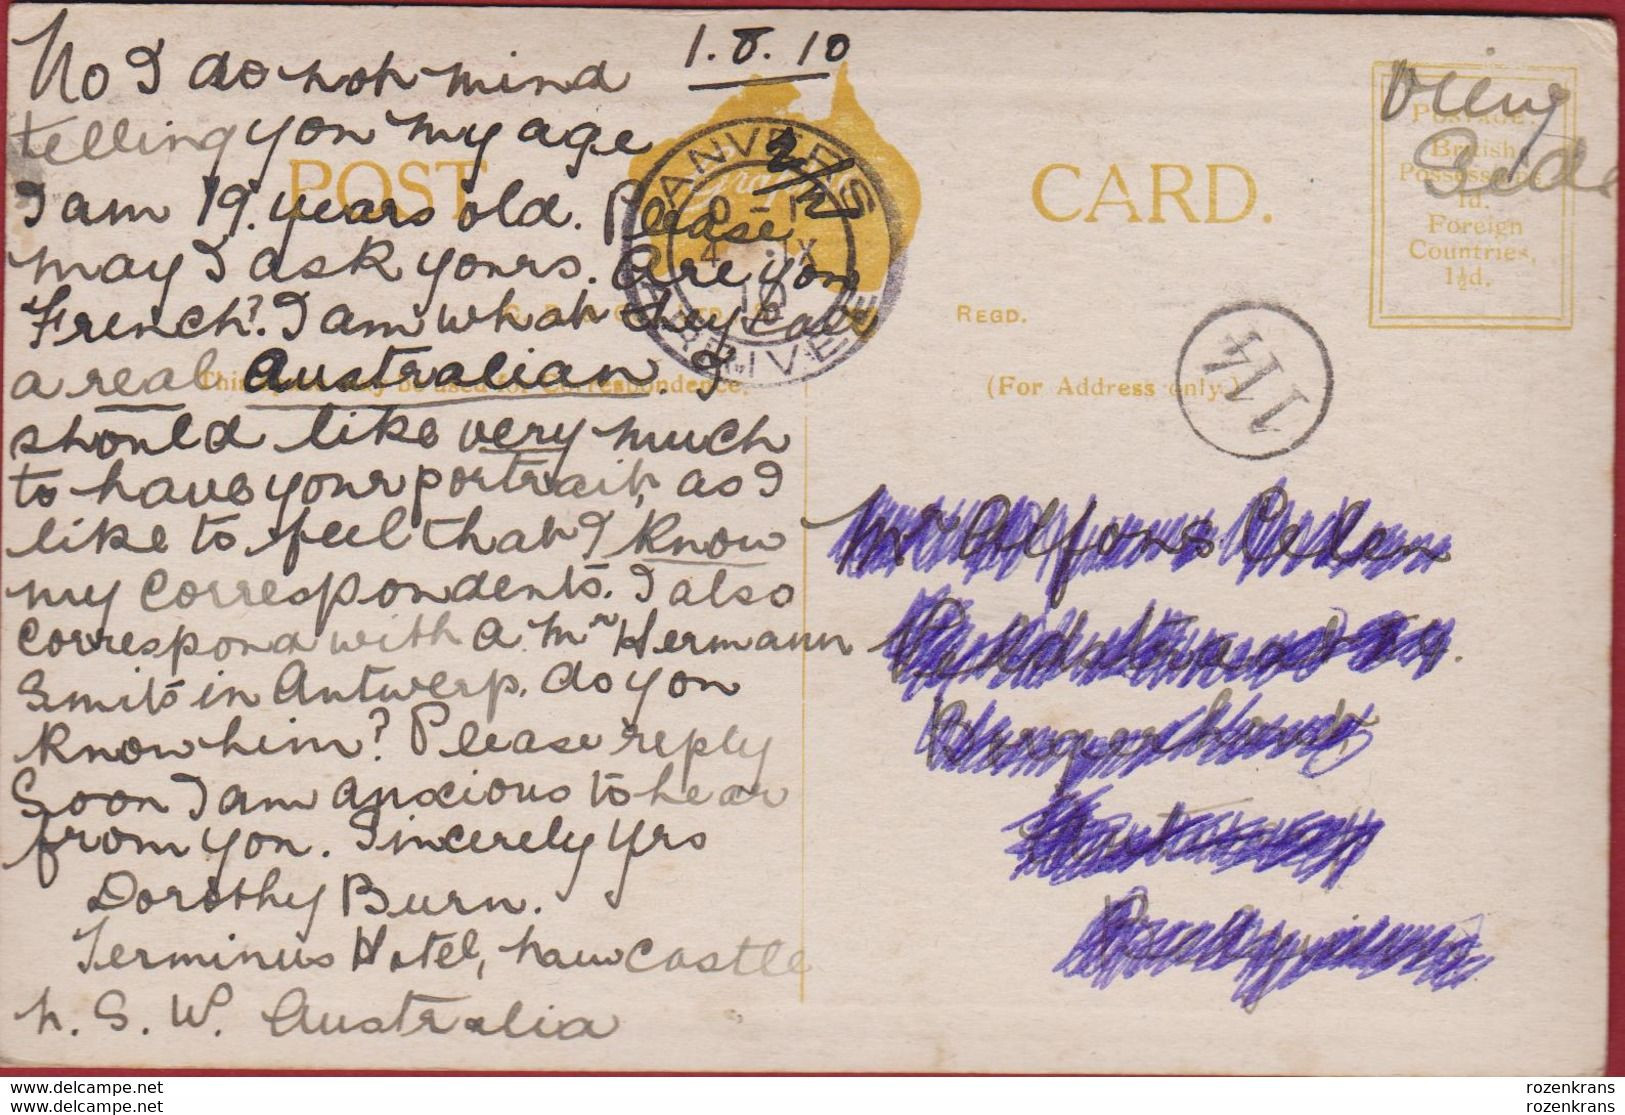 1.8.10
No I do not mind
telling you my age
I am 19. years old. Please
may I ask yours. Are you
French? I am what they call
a real Australian. I
should like very much
to have your portrait, as I
like to feel that I know
my correspondents. I also
correspond with a Mr Hermann
Smits in Antwerp, do you
know him? Please reply
Soon I am anxious to hear
from you. Sincerely yrs
Dorothy Burn.
Terminus Hotel, Newcastle
N. S. W. Australia
2/2
POST CARD.
This may be used for Correspondence.
ANVERS
ARRIVEE
View
Side
Postage
British
Possessions
1d.
Foreign
Countries,
1½d.
REGD.
(For Address only.)
114
Mr Alfons
delcampe.net
delcampe.net
rozenkrans
rozenkrans